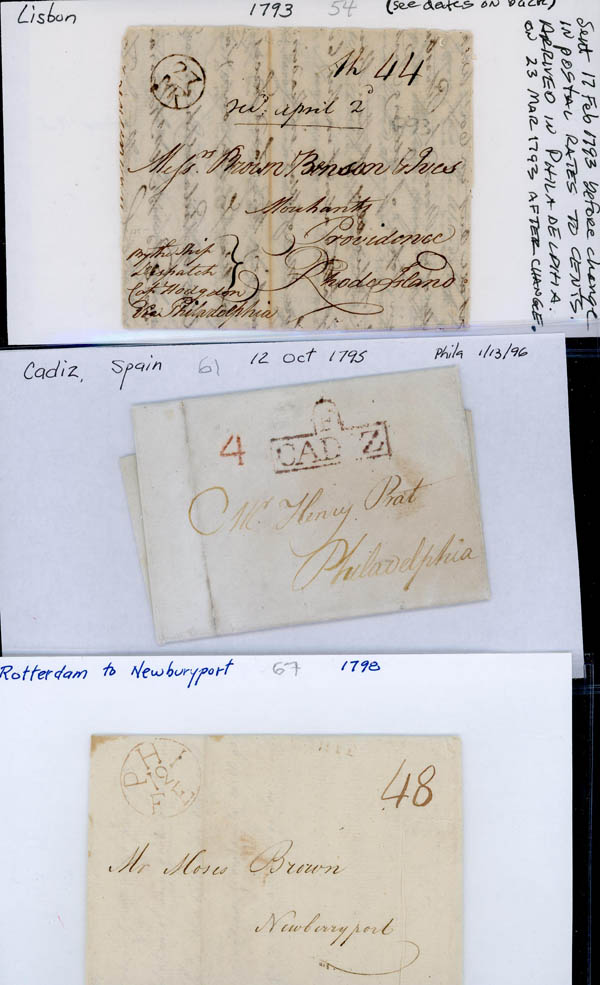 Lisbon 1793 54 (see dates on back)
Sent 17 Feb 1793 before change
in postal rates to cents.
Arrived in Philadelphia.
on 23 Mar 1793 after change.
44
April 2d
1793
Messrs Brown Benson & Ives
Merchants
Providence
Rhode Island
By the Ship
Dispatch
Capt Hodgdon
Via Philadelphia
Cadiz, Spain 61 12 Oct 1795 Phila 1/13/96
4
CADIZ
Mr Henry Prat
Philadelphia
Rotterdam to Newburyport 67 1798
PHI
48
Mr Moses Brown
Newberryport